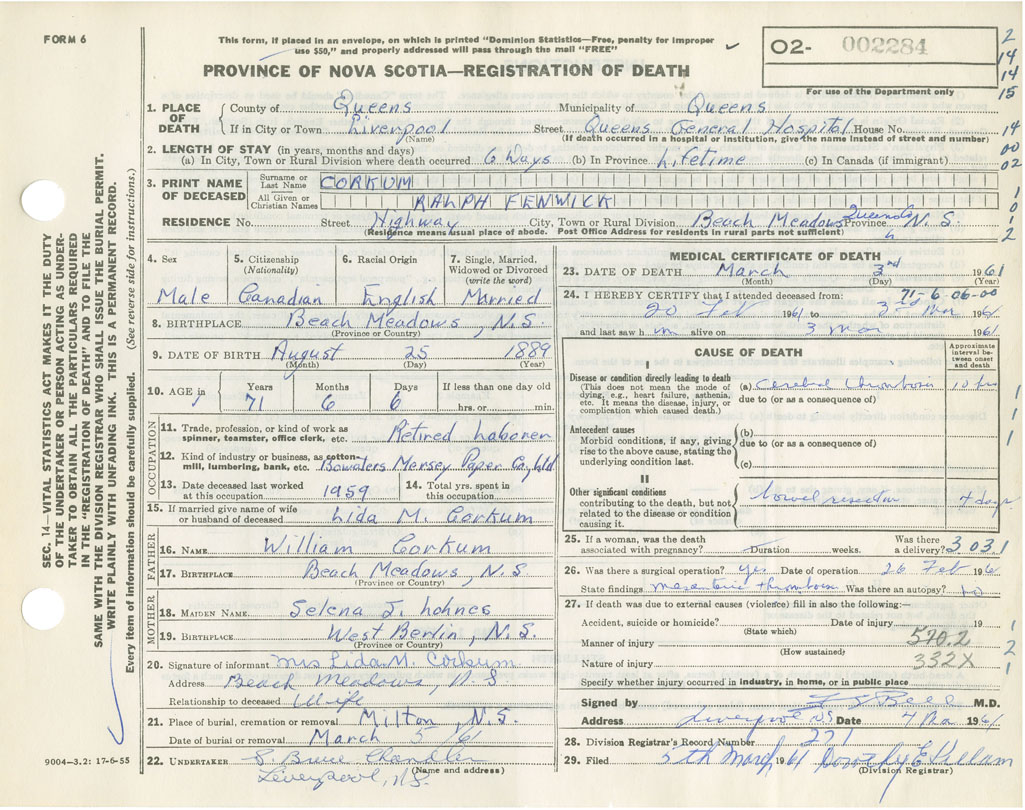 FORM 6
This form, if placed in an envelope, on which is printed "Dominion Statistics—Free, penalty for improper
use $50," and properly addressed will pass through the mail "FREE"
PROVINCE OF NOVA SCOTIA—REGISTRATION OF DEATH
02- 002284
For use of the Department only
2
14
14
15
14
00
02
1
0
1
2
1. PLACE OF DEATH
County of Queens Municipality of Queens
If in City or Town Liverpool Street Queens General Hospital House No.
(Name) (If death occurred in a hospital or institution, give the name instead of street and number)
2. LENGTH OF STAY (in years, months and days)
(a) In City, Town or Rural Division where death occurred 6 Days (b) In Province Lifetime (c) In Canada (if immigrant)
3. PRINT NAME OF DECEASED
Surname or Last Name CORKUM
All Given or Christian Names RALPH FENWICK
RESIDENCE No. Street Highway City, Town or Rural Division Beach Meadows Queens Co Province N.S.
(Residence means usual place of abode. Post Office Address for residents in rural parts not sufficient)
4. Sex
Male
5. Citizenship (Nationality)
Canadian
6. Racial Origin
English
7. Single, Married, Widowed or Divorced (write the word)
Married
8. BIRTHPLACE Beach Meadows, N.S.
(Province or Country)
9. DATE OF BIRTH August 25 1889
(Month) (Day) (Year)
10. AGE in Years Months Days If less than one day old
71 6 6 hrs. or min.
OCCUPATION
11. Trade, profession, or kind of work as
spinner, teamster, office clerk, etc. Retired Laborer
12. Kind of industry or business, as cotton-
mill, lumbering, bank, etc. Bowaters Mersey Paper Co Ltd
13. Date deceased last worked at this occupation 1959
14. Total yrs. spent in this occupation
15. If married give name of wife
or husband of deceased Lida M. Corkum
FATHER
16. NAME William Corkum
17. BIRTHPLACE Beach Meadows, N.S.
(Province or Country)
MOTHER
18. MAIDEN NAME Selena J. Lohnes
19. BIRTHPLACE West Berlin, N.S.
(Province or Country)
20. Signature of informant Mrs Lida M. Corkum
Address Beach Meadows, N.S.
Relationship to deceased Wife
21. Place of burial, cremation or removal Milton, N.S.
Date of burial or removal March 5 / 61
22. UNDERTAKER S. Bruce Chandler
Liverpool, N.S. (Name and address)
MEDICAL CERTIFICATE OF DEATH
23. DATE OF DEATH March 3rd 1961
(Month) (Day) (Year)
24. I HEREBY CERTIFY that I attended deceased from: 71-6-06-00
20 Feb 1961 to 3rd Mar 1961
and last saw him alive on 3 Mar 1961
CAUSE OF DEATH
Approximate interval between onset and death
I
Disease or condition directly leading to death
(This does not mean the mode of
dying, e.g., heart failure, asthenia,
etc. It means the disease, injury, or
complication which caused death.)
(a) Cerebral thrombosis 10 hrs
due to (or as a consequence of)
Antecedent causes
Morbid conditions, if any, giving
rise to the above cause, stating the
underlying condition last.
(b)
due to (or as a consequence of)
(c)
II
Other significant conditions
contributing to the death, but not
related to the disease or condition
causing it.
bowel resection 4 days
1
1
1
25. If a woman, was the death
associated with pregnancy? Duration weeks. Was there a delivery?
3 031
26. Was there a surgical operation? yes Date of operation 26 Feb 1961
State findings mesenteric thrombosis Was there an autopsy? no
27. If death was due to external causes (violence) fill in also the following:—
Accident, suicide or homicide? Date of injury 19
(State which)
Manner of injury 570.2
(How sustained)
Nature of injury 332X
1
2
1
Specify whether injury occurred in industry, in home, or in public place
Signed by M.D.
Address Liverpool NS Date 4 Mar 1961
28. Division Registrar's Record Number 271
29. Filed 5th March 1961 Dorothy E
(Division Registrar)
SEC. 14—VITAL STATISTICS ACT MAKES IT THE DUTY
OF THE UNDERTAKER OR PERSON ACTING AS UNDER-
TAKER TO OBTAIN ALL THE PARTICULARS REQUIRED
IN THE "REGISTRATION OF DEATH" AND TO FILE THE
SAME WITH THE DIVISION REGISTRAR WHO SHALL ISSUE THE BURIAL PERMIT.
WRITE PLAINLY WITH UNFADING INK. THIS IS A PERMANENT RECORD.
Every item of information should be carefully supplied. (See reverse side for instructions.)
9004—3.2: 17-6-55